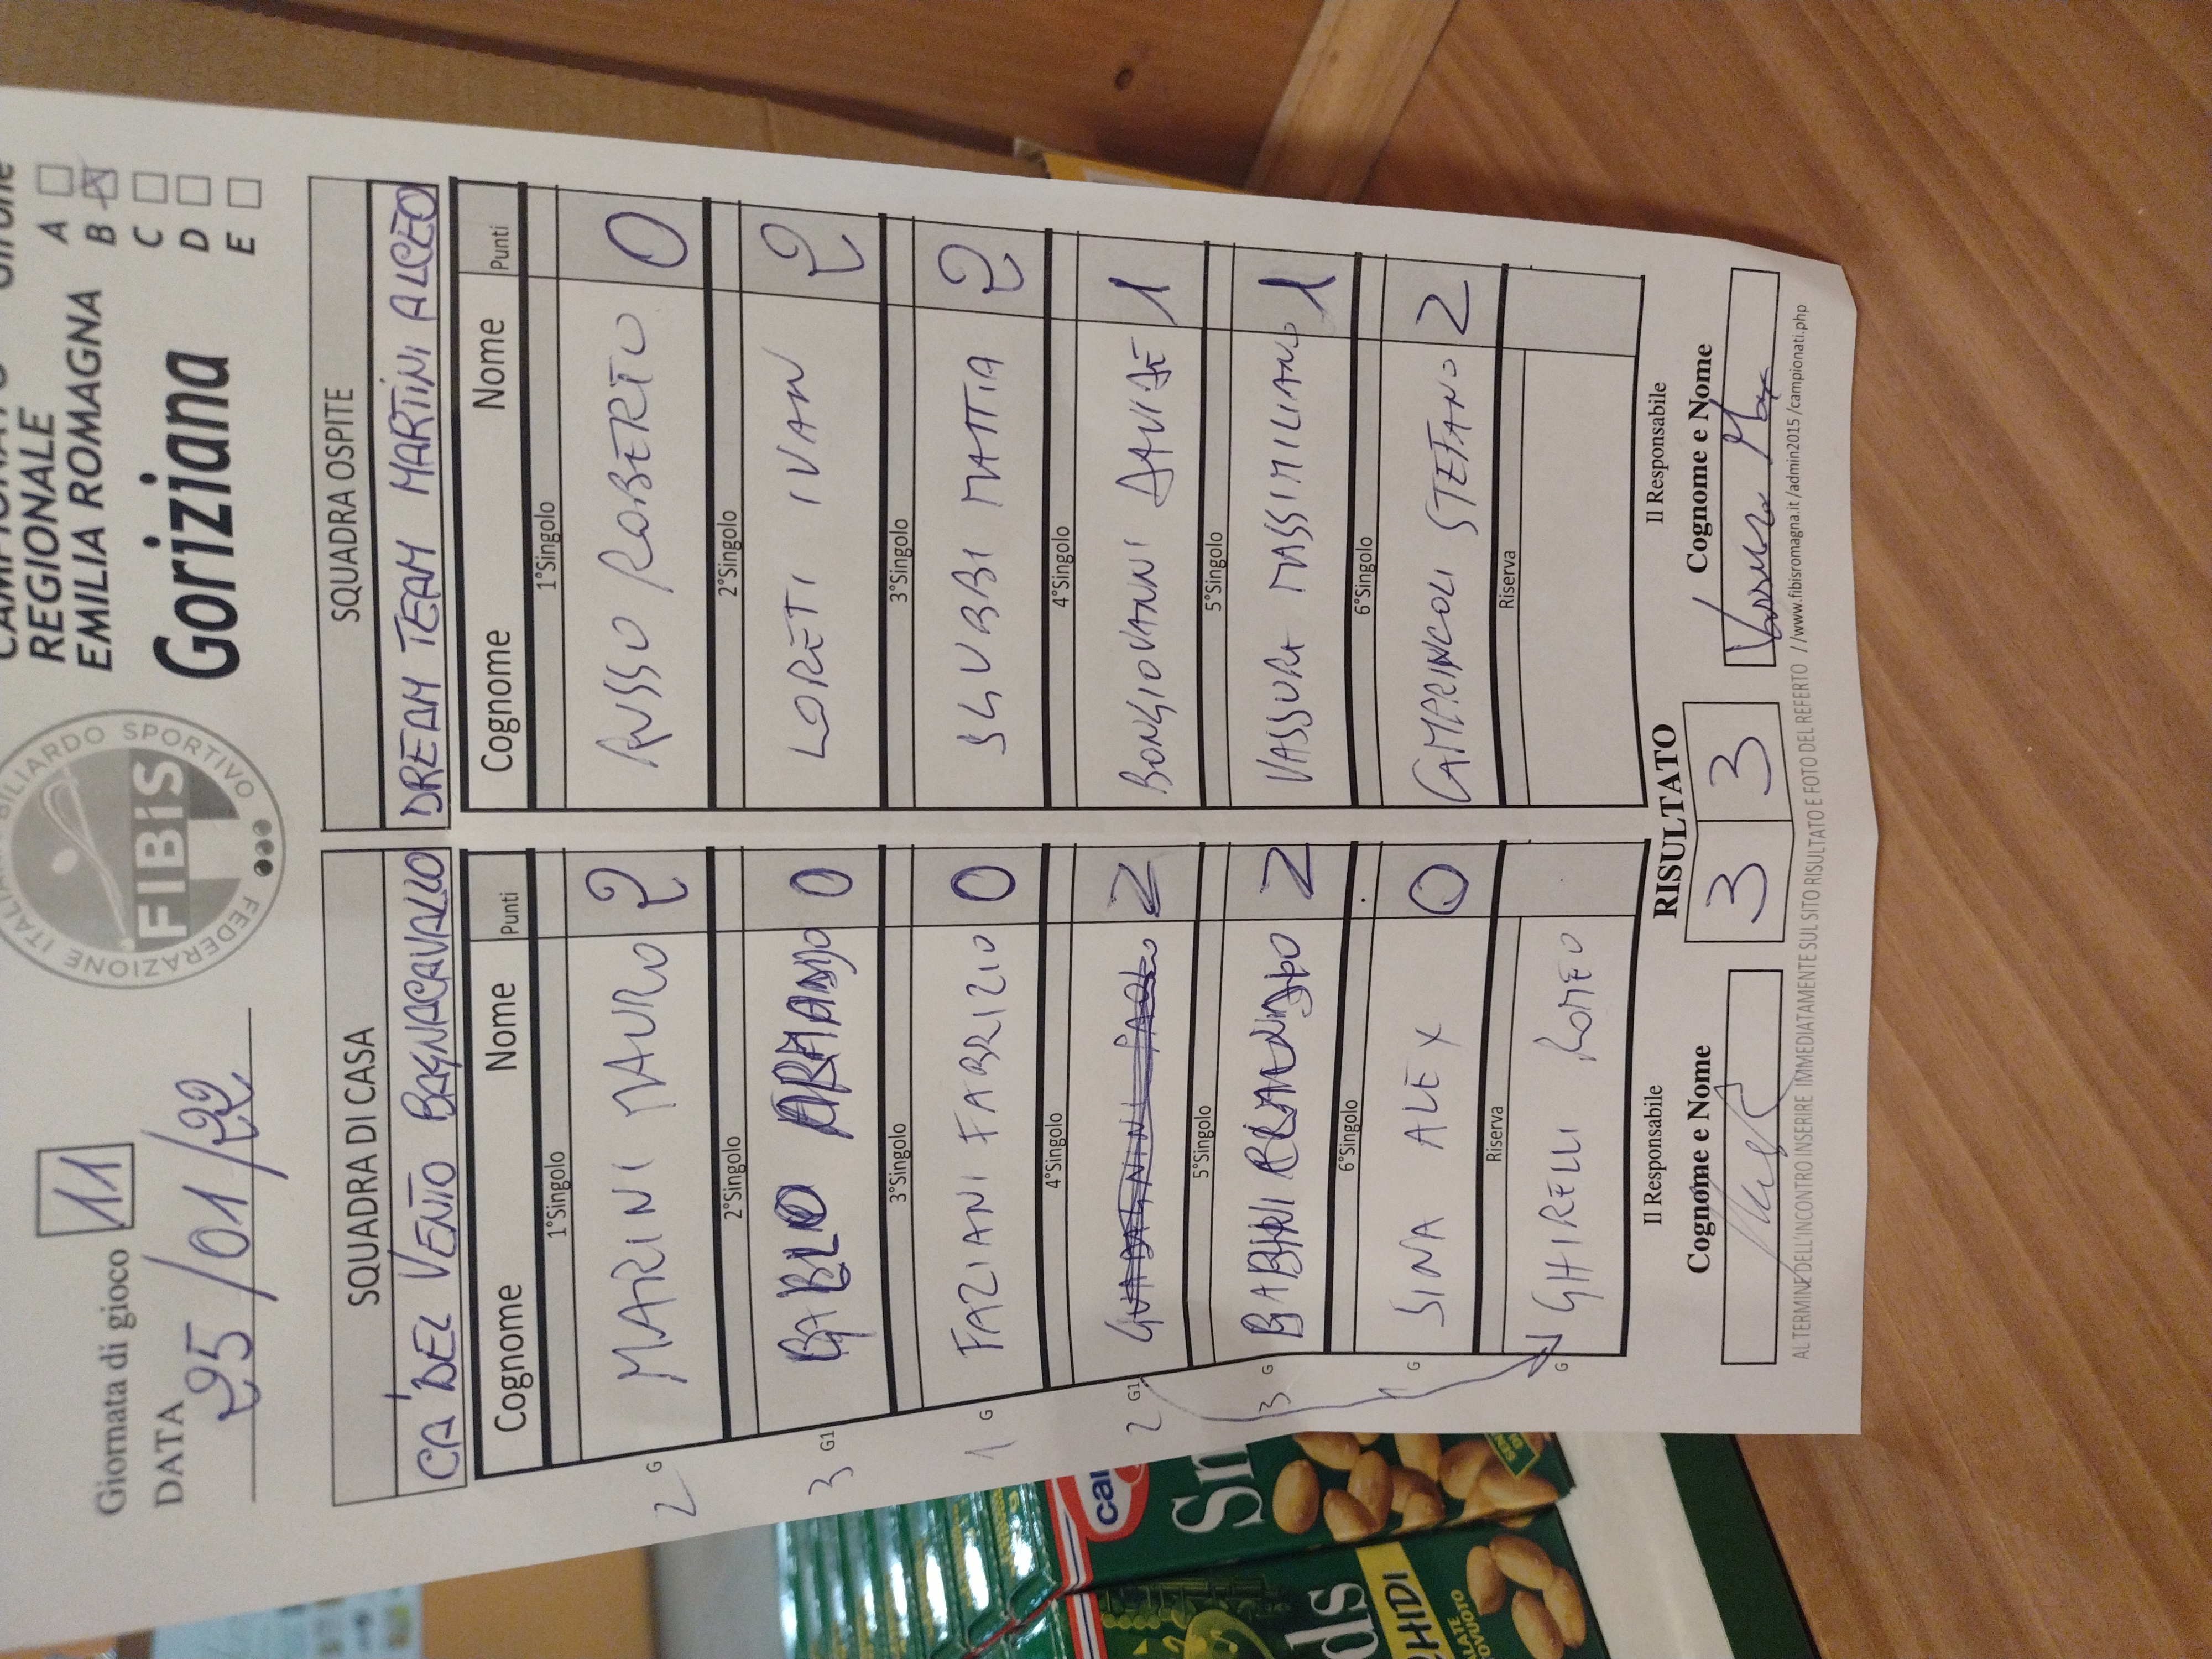 Giornata di gioco 11
DATA 25/01/22
FEDERAZIONE ITALIANA BILIARDO SPORTIVO
FIBiS
REGIONALE
EMILIA ROMAGNA
Goriziana
A
B
C
D
E
SQUADRA DI CASA
CA' DEL VENTO BAGNACAVALLO
Cognome Nome Punti
1°Singolo
MARINI MAURO 2
2 G
2°Singolo
ARMANDO 0
3 G1
3°Singolo
FAZIANI FABRIZIO 0
1 G
4°Singolo
2
2 G1
5°Singolo
BABINI 2
3 G
6°Singolo
SINA ALEX 0
G
Riserva
GHIRELLI ROMEO
G
SQUADRA OSPITE
DREAM TEAM MARTINI ALCEO
Cognome Nome Punti
1°Singolo
RUSSO ROBERTO 0
2°Singolo
LORETI IVAN 2
3°Singolo
SGUBBI MATTIA 2
4°Singolo
BONGIOVANNI DAVIDE 1
5°Singolo
VASSURA MASSIMILIANO 1
6°Singolo
CAMPRINCOLI STEFANO 2
Riserva
Il Responsabile
Cognome e Nome
RISULTATO
3 3
Il Responsabile
Cognome e Nome
AL TERMINE DELL'INCONTRO INSERIRE IMMEDIATAMENTE SUL SITO RISULTATO E FOTO DEL REFERTO //www.fibisromagna.it/admin2015/campionati.php